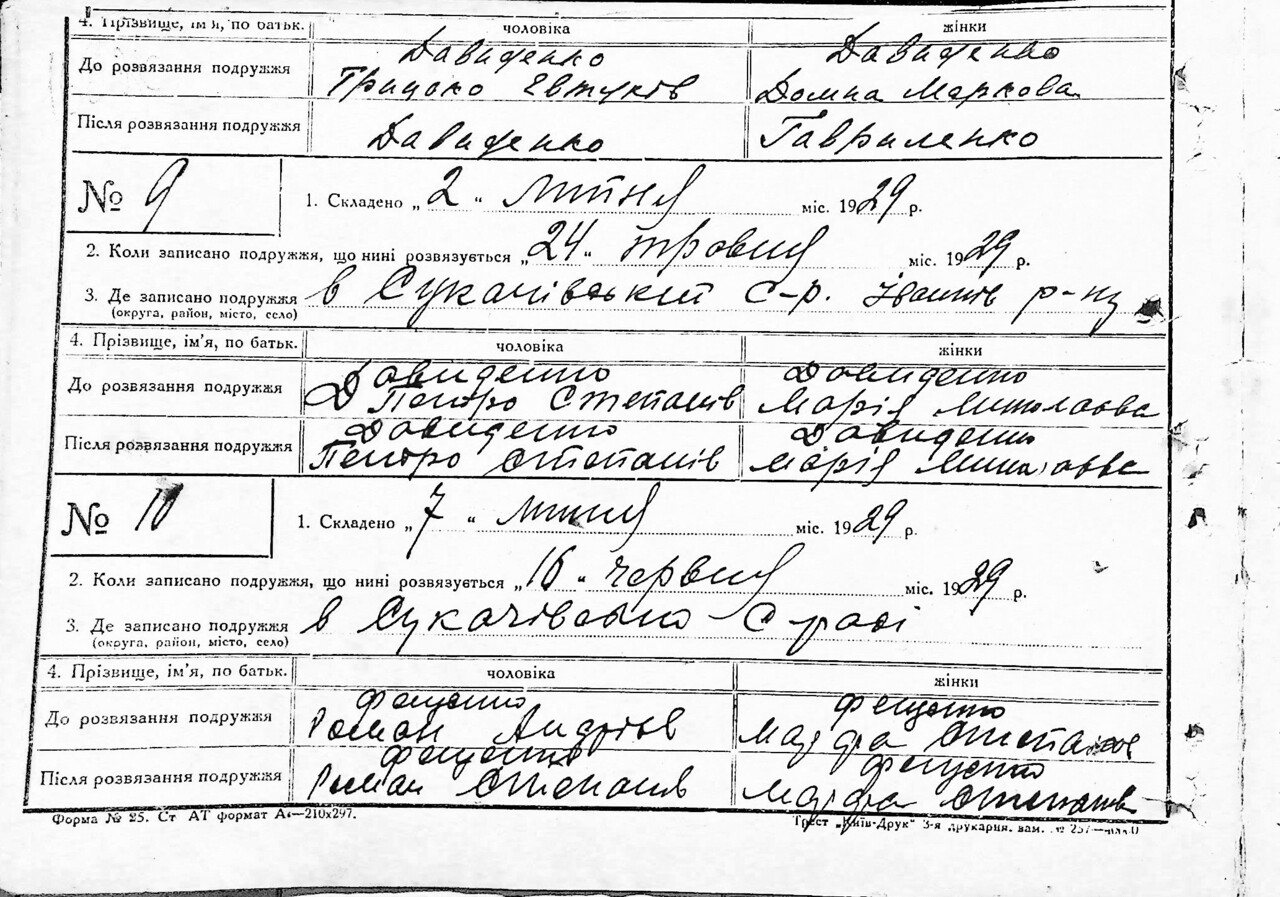 4. Прізвище, ім'я, по батьк. чоловіка жінки
Давиденко Давиденко
До розвязання подружжя Грицько Евтухів Домна Маркова
Після розвязання подружжя Давиденко Гавриленко
№ 9 1. Складено „2“ липня міс. 1929 р.
2. Коли записано подружжя, що нині розвязується „24“ травня міс. 1929 р.
3. Де записано подружжя в Сукачівський С-р. Іванків р-ну
(округа, район, місто, село)
4. Прізвище, ім'я, по батьк. чоловіка жінки
Давиденко Давиденко
До розвязання подружжя Петро Степанів Марія Миколаєва
Давиденко Давиденко
Після розвязання подружжя Петро Степанів Марія
№ 10 1. Складено „7“ липня міс. 1929 р.
2. Коли записано подружжя, що нині розвязується „16“ червня міс. 1929 р.
3. Де записано подружжя в С-раді
(округа, район, місто, село)
4. Прізвище, ім'я, по батьк. чоловіка жінки
Фещенко Фещенко
До розвязання подружжя Роман Андріїв
Фещенко Фещенко
Після розвязання подружжя Роман Степанів
Форма № 25. Ст АТ формат А4—210х297. Трест „Київ-Друк“ 3-я друкарня.